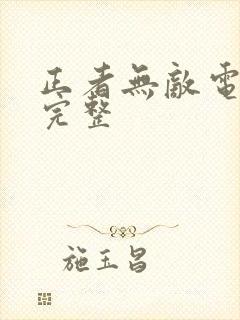 正者無敵電
完整
施玉昌